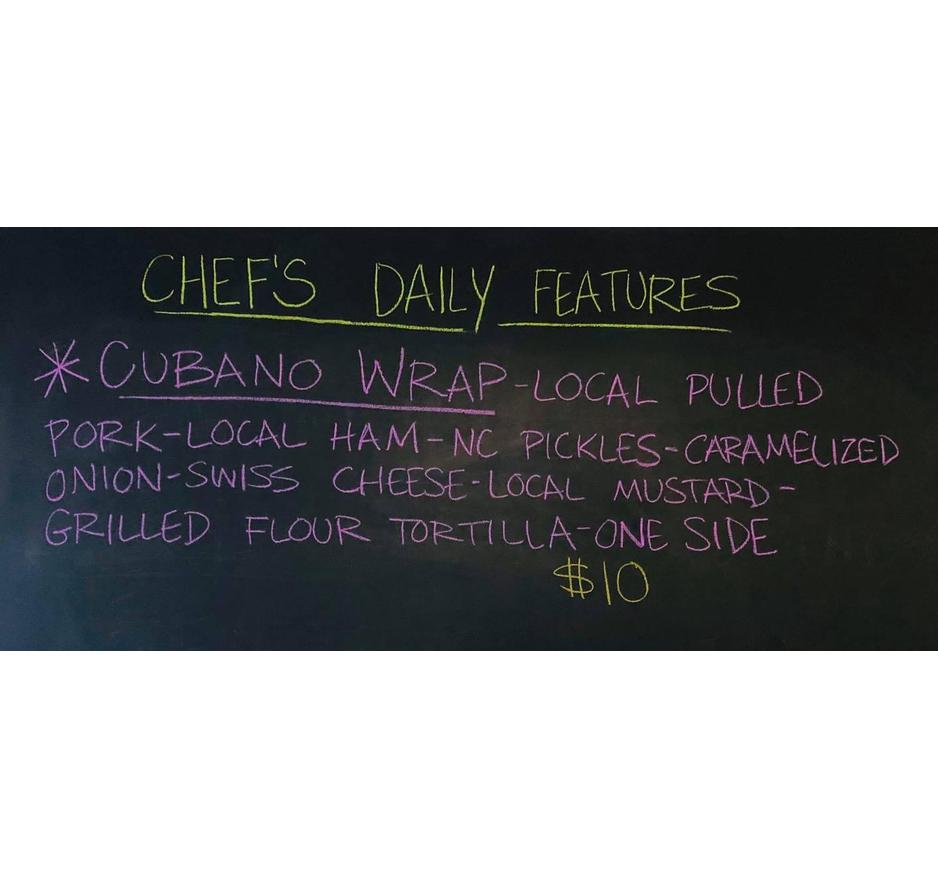 CHEF'S DAILY FEATURES
*CUBANO WRAP-LOCAL PULLED
PORK-LOCAL HAM-NC PICKLES-CARAMELIZED
ONION-SWISS CHEESE-LOCAL MUSTARD-
GRILLED FLOUR TORTILLA-ONE SIDE
$10